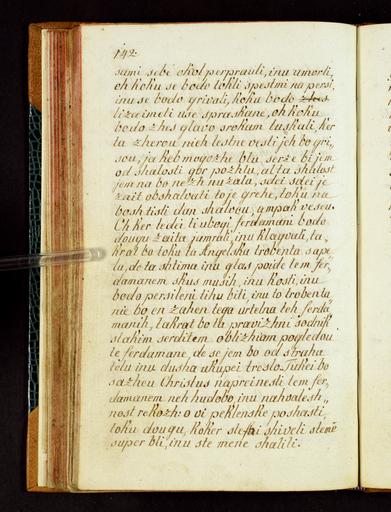 142
sami sebe okol perpravli, inu umorti,
oh koku se bodo tokli spestmi na persi,
inu se bodo grivali, koku bodo
liza imeti use spraskane, oh koku
bodo zhes glavo srokam tuskali, ker
ta zherou nieh lestne vesti jeh bo gri,,
sou, ja keb mogozhe bla serze bi jem
od shalosti gor pozhlu, al ta shalost
jem na bo nezh nuzala, sdei sdei je
zait obshaluati toje grehe, toku na
bosh tisti dan shalvou, ampak veseu.
Ch ker te dei ti ubogi ferdamani bodo
dougu zaita jamrali, inu klagvali, ta,,
krat bo toku ta Angelska trobenta sape
la, de ta shtima inu glas poide tem fer,,
damanem skus musih, inu kosti, inu
bodo persileni tihu biti, inu to trobenta
nie bo en zahen tega urtelna teh ferda
manih, takrat bo ta pravizhni sodnik
stakim serditem oblizhiam pogledou
te ferdamane, de se jem bo od straha
telu inu dusha ukupei treslo. Tukei bo
sazheu Christus napreinesti tem fer,,
damanem neh hudobo, inu nahvalesh,,
nost rekozh: o vi peklenske poshasti,
toku dougu, koker ste shiveli ste mene
super bli, inu ste mene shalili.